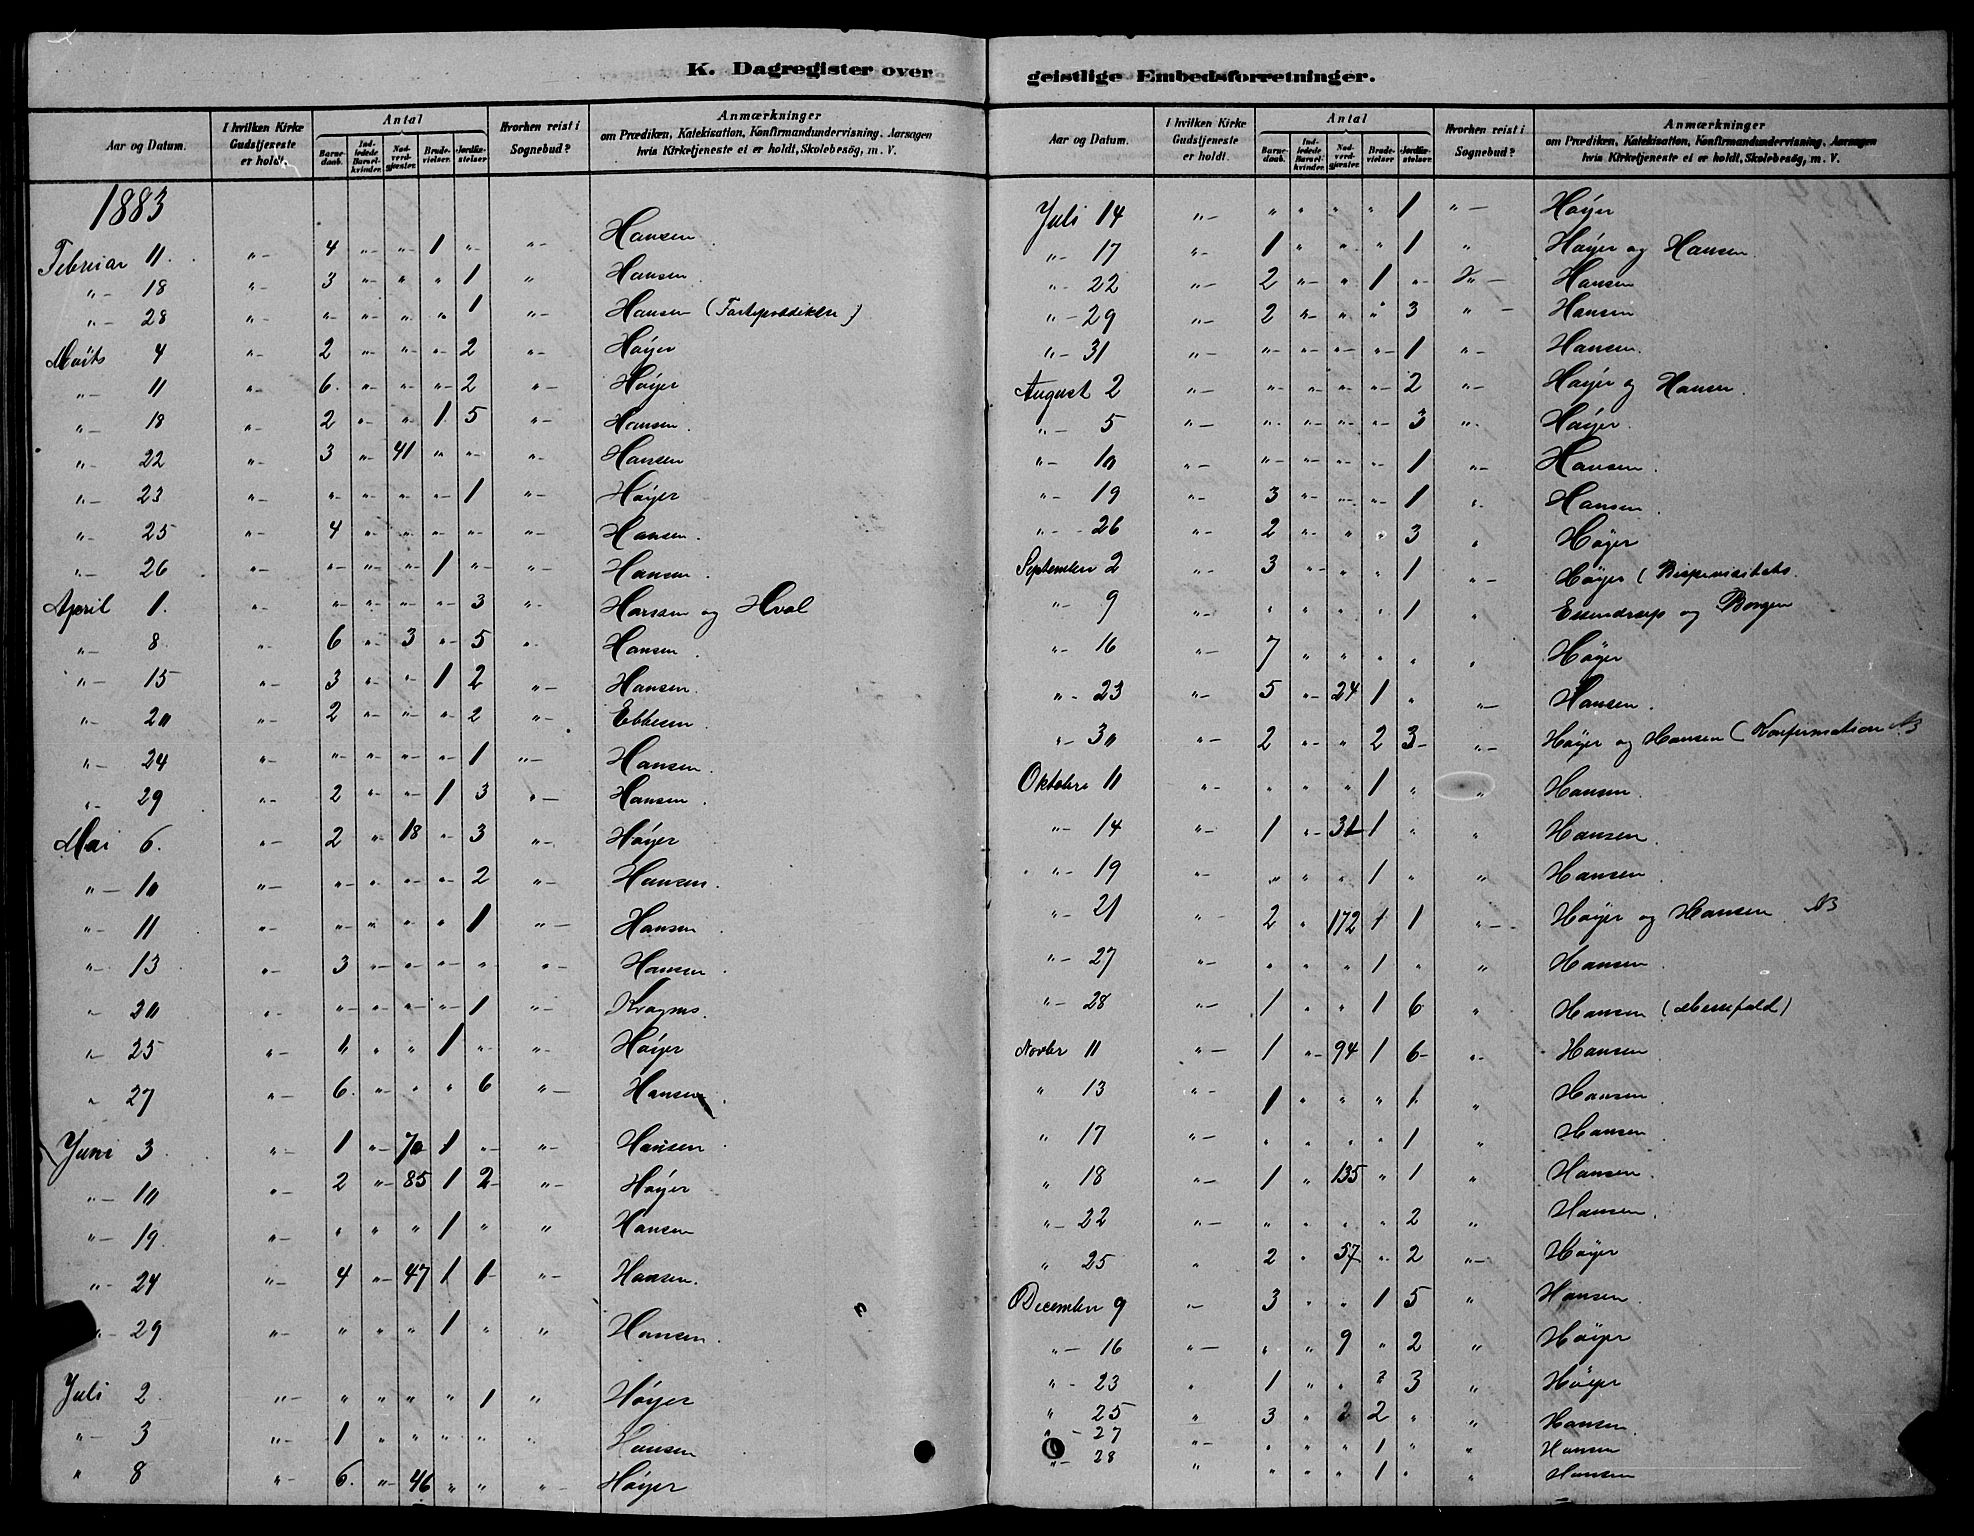 K. Dagregister over
Aar og Datum. I hvilken Kirke Gudstjeneste er holdt. Antal Barnedaab. Indledede Barselkvinder. Nadverdgjæster. Brudevielser. Jordfæstelser. Hvorhen reist i Sognebud? Anmærkninger om Prædiken, Katekisation, Konfirmandundervisning, Aarsagen hvis Kirketjeneste ei er holdt, Skolebesög, m. V.
1883
Februar 11. "- 4 "- "- 1 "- "- Hansen.
"- 18 "- 3 "- " " 1 " Hansen.
"- 28 "- " " " " 1 "- Hansen (Fasteprædiken)
Marts 4 "- 2 "- "- "- 2 "- Høyer
"- 11 "- 6. "- "- "- 2 "- Høyer
"- 18 "- 2 "- " 1 5 "- Hansen.
"- 22 "- 3 "- 41 "- "- "- Hansen
"- 23 "- "- "- "- "- 1 "- Høyer
"- 25 "- 4 "- "- "- "- "- Hansen.
"- 26 "- "- "- "- 1 "- "- Hansen.
April 1. "- "- "- "- "- 3 "- Hansen og Hval
"- 8 "- 6 "- 3 "- 5 "- Hansen.
"- 15 "- 3 "- "- 1 2 "- Hansen.
"- 20 "- 2 "- "- "- 2 "- Ebbesen.
"- 24 "- "- "- "- "- 1 "- Hansen.
"- 29 "- 2 "- "- 1 3 "- Hansen.
Mai 6. "- 2 " 18 "- 3 "- Høyer
"- 10 "- "- "- "- "- 2 "- Hansen.
"- 11 "- "- "- "- "- 1 "- Hansen
"- 13 "- 3 "- "- "- "- "- Hansen.
"- 20 "- "- "- "- "- 1 "-
"- 25 "- 1 " " 1 "- "- Høyer
" 27 "- 6. "- " " 6 "- Hansen.
Juni 3 "- 1 "- 70 1 "- "- Hansen.
"- 10 "- 2 "- 85 1 2 "- Høyer
"- 19 "- " " " 1 " " Hansen
"- 24 "- 4 "- 47 1 1 "- Hansen.
"- 29 "- " " " 1 " " Hansen.
Juli 2 "- " " " " 1 " Høyer
"- 3 "- 1 " " " " " Hansen
" 8 "- 6. "- 46 " " "- Høyer
geistlige Embedsforretninger.
Aar og Datum. I hvilken Kirke Gudstjeneste er holdt. Antal Barnedaab. Indledede Barselkvinder. Nadverdgjæster. Brudevielser. Jordfæstelser. Hvorhen reist i Sognebud? Anmærkninger om Prædiken, Katekisation, Konfirmandundervisning, Aarsagen hvis Kirketjeneste ei er holdt, Skolebesög, m. V.
Juli 14 "- " " " " 1 "- Høyer
"- 17 "- 1 " " " 1 " Høyer og Hansen.
"- 22 "- 2 "- " 1 "- "- Hansen
"- 29 "- 2 "- " " 3 "- Hansen
"- 31 "- "- "- "- "- 1 "- Hansen.
August 2 "- "- "- "- "- 2 "- Høyer og Hansen.
"- 5 "- "- "- "- "- 3 "- Høyer.
"- 10 "- "- "- "- "- 1 "- Hansen.
"- 19 "- 3 "- "- "- 1 " Hansen.
"- 26 "- 2 "- " " 3 " Høyer
September 2 "- 3 "- " " 1 "- Høyer (Bispevisitats.
"- 9 "- " " " " 1 " Essendrop og Borgen
"- 16 "- 7 " " " " " Høyer
"- 23 "- 5 "- 24 1 " "- Hansen.
"- 30 "- 2 "- " 2 3 "- Høyer og Hansen (Konfirmation NB
Oktober 11 "- " " " 1 " " Hansen.
"- 14 "- 1 "- 31 1 " " Hansen.
"- 19 "- " " " 1 " " Hansen.
"- 21 "- 2 " 172 1 1 "- Høyer og Hansen. NB
"- 27 "- " " " 1 " " Hansen.
"- 28 "- 1 " " 1 6 " Hansen (Messefald)
Novbr 11 "- 1 "- 94 1 6 "- Hansen
" 13 "- 1 " " " 1 " Hansen.
" 17 "- " " " " 1 " Hansen.
" 18 "- 1 " 135 " 1 " Hansen.
"- 22 "- " " " " 2 " Hansen.
" 25 " 2 " 57 " 2 "- Høyer
December 9 "- 3 " " 1 5 " Hansen.
"- 16 "- " " 9 " 2 " Høyer
"- 23 " 1 " " " 3 " Høyer
" 25 " 3 " 2 2 " " Hansen.
"- 27 "- " " " 1 " " Hansen
"- 28 " " " " 1 " " Hansen